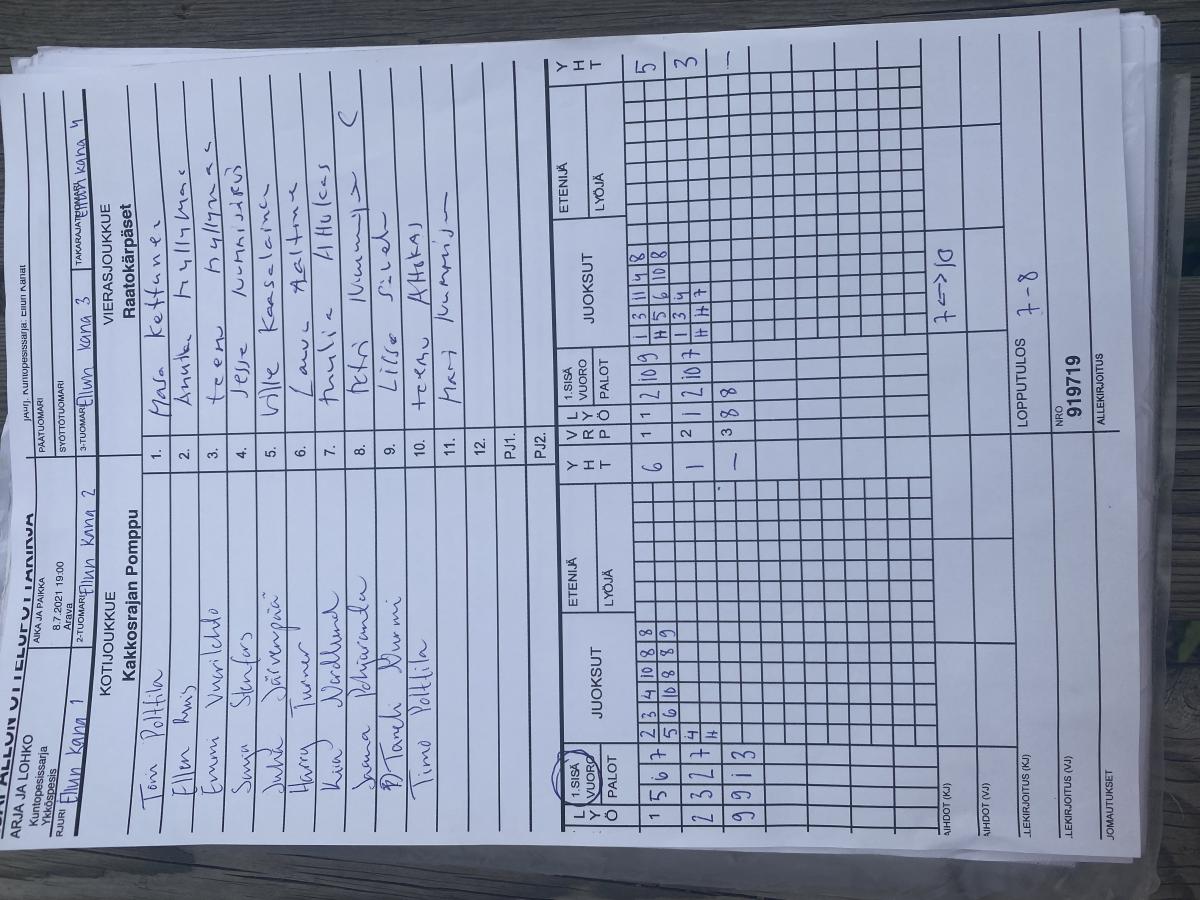 ARJA JA LOHKO
Kuntopesissarja
Ykköspesis
AIKA JA PAIKKA
8.7.2021 19:00
Arava
PÄÄTUOMARI
SYÖTTÖTUOMARI
RUURI Ellun kana 1
2-TUOMARI Ellun kana 2
3-TUOMARI Ellun kana 3
TAKARAJATUOMARI Ellun kana 4
KOTIJOUKKUE
Kakkosrajan Pomppu
VIERASJOUKKUE
Raatokärpäset
Tomi Polttila 1. Masa Kettunen
Ellen 2. Annukka Hyllymaa
Emmi Vuorilehto 3. teemu hyllymaa
Sonja Stenfors 4. Jesse
Juha Järvenpää 5. Ville Kaasalainen
Harry Turner 6. Laura Aaltonen
Kaj Nordlund 7. Ahokas
Jaana Pohjaranta 8. Petri C
Taneli Nurmi 9.
Timo Polttila 10. teemu Ahokas
11.
12.
PJ1.
PJ2.
L Y Ö 1.SISÄ VUORO PALOT JUOKSUT ETENIJÄ LYÖJÄ Y H T V R P L Y Ö 1.SISÄ VUORO PALOT JUOKSUT ETENIJÄ LYÖJÄ Y H T
1 5 6 7 2 3 4 10 8 8 6 1 1 2 10 9 1 3 11 4 8 5
5 6 10 8 8 9 H 5 6 10 8
2 3 2 7 4 1 2 1 2 10 7 1 3 4 3
H H H 7
9 9 1 3 – 3 8 8 8 –
AIHDOT (KJ) 7 <-> 10
AIHDOT (VJ)
LEKIRJOITUS (KJ) LOPPUTULOS 7 - 8
LEKIRJOITUS (VJ) NRO 919719
JOMAUTUKSET ALLEKIRJOITUS